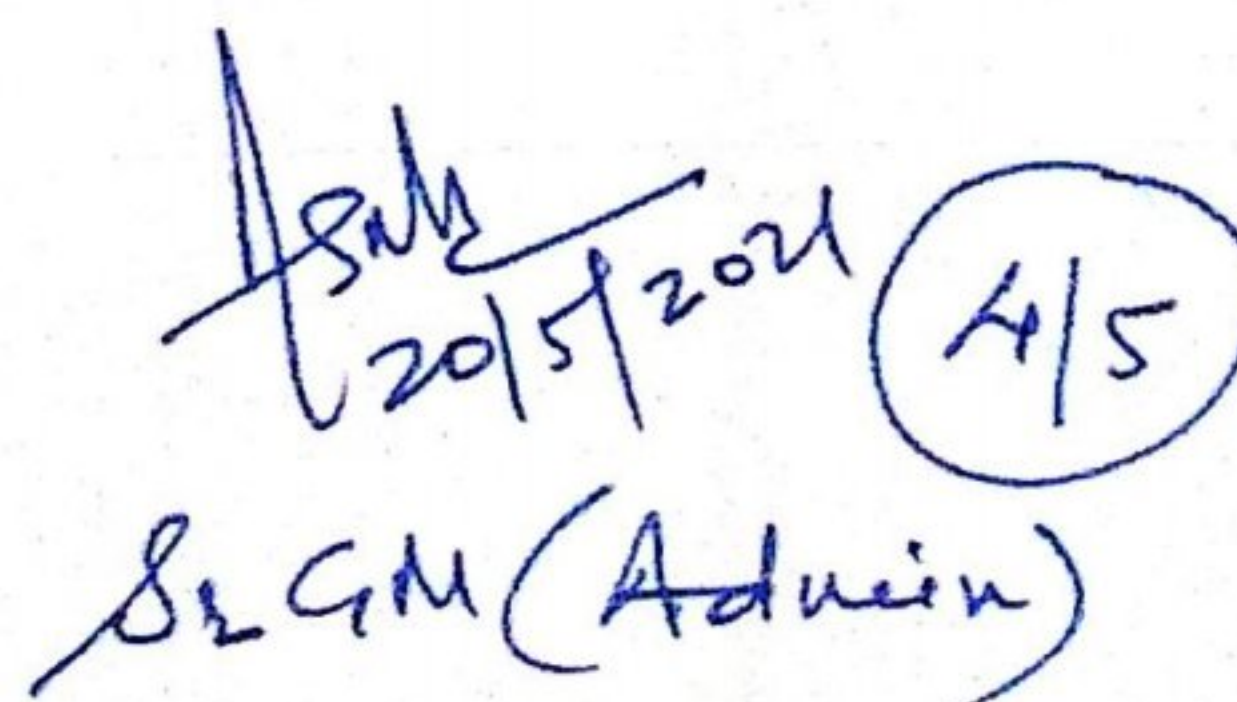 20/5/2021 4/5
Sr GM (Admin)